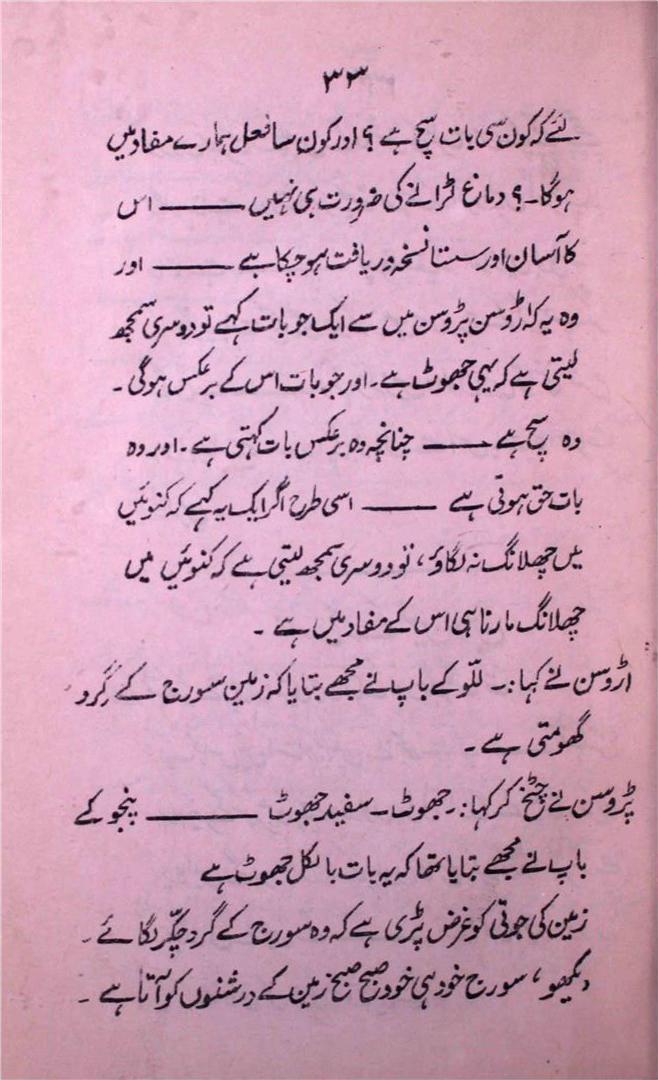 ۳۳
لئے کہ کون سی بات سچ ہے ؟ اور کون سا فعل ہمارے مفاد میں
ہوگا۔ ؟ دماغ لڑانے کی ضرورت ہی نہیں ——— اس
کا آسان اور سستا نسخہ دریافت ہو چکا ہے ——— اور
وہ یہ کہ اڑوسن پڑوسن میں سے ایک جو بات کہے تو دوسری سمجھ
لیتی ہے کہ یہی جھوٹ ہے۔ اور جو بات اس کے برعکس ہوگی ۔
وہ سچ ہے ——— چنانچہ وہ برعکس بات کہتی ہے ۔ اور وہ
بات حق ہوتی ہے ——— اسی طرح اگر ایک یہ کہے کہ کنوئیں
میں چھلانگ نہ لگاؤ ، تو دوسری سمجھ لیتی ہے کہ کنوئیں میں
چھلانگ مارنا ہی اس کے مفاد میں ہے ۔
اڑوسن نے کہا :۔ للّو کے باپ نے مجھے بتایا کہ زمین سورج کے گرد
گھومتی ہے ۔
پڑوسن نے چٹخ کر کہا :۔ جھوٹ ۔ سفید جھوٹ ——— پنجو کے
باپ نے مجھے بتایا تھا کہ یہ بات بالکل جھوٹ ہے
زمین کی جوتی کو غرض پڑی ہے کہ وہ سورج کے گرد چکّر لگائے ۔
دیکھو ، سورج خود ہی خود صبح صبح زمین کے درشنوں کو آتا ہے ۔